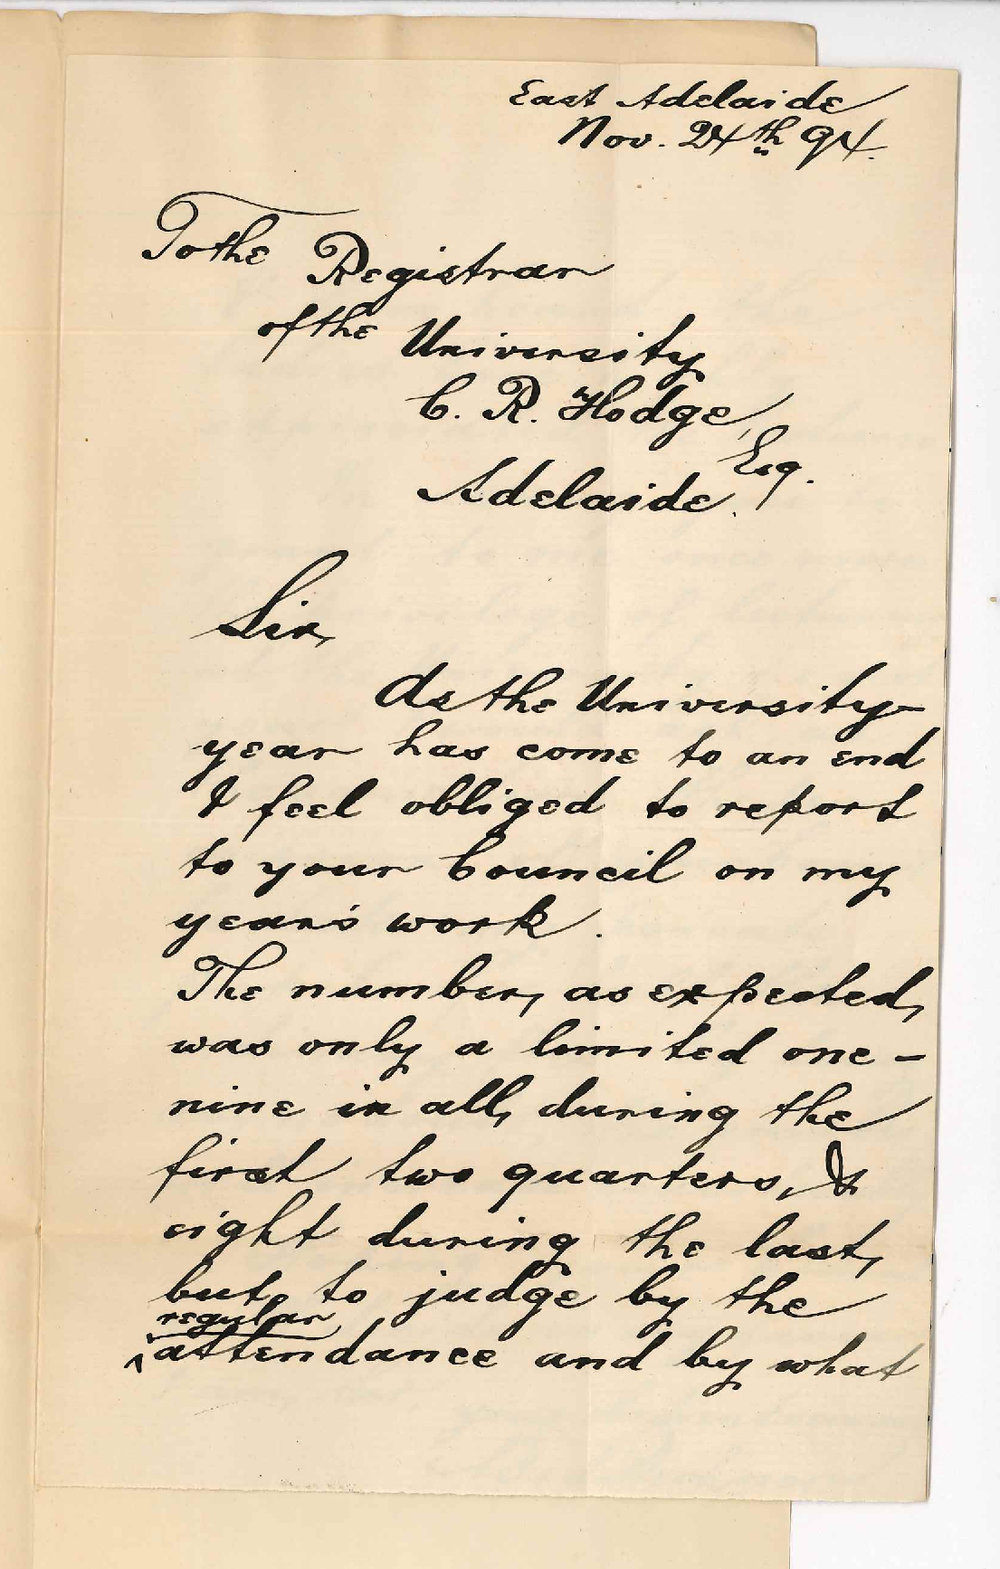 East Adelaide
Nov. 24th 94.
To the Registrar
of the University
C. R. Hodge,
Esq.
Adelaide.
Sir,
As the University-
year has come to an end
I feel obliged to report
to your Council on my
year's work.
The number, as expected,
was only a limited one –
nine in all, during the
first two quarters, &
eight during the last,
but to judge by the
regular
^attendance and by what